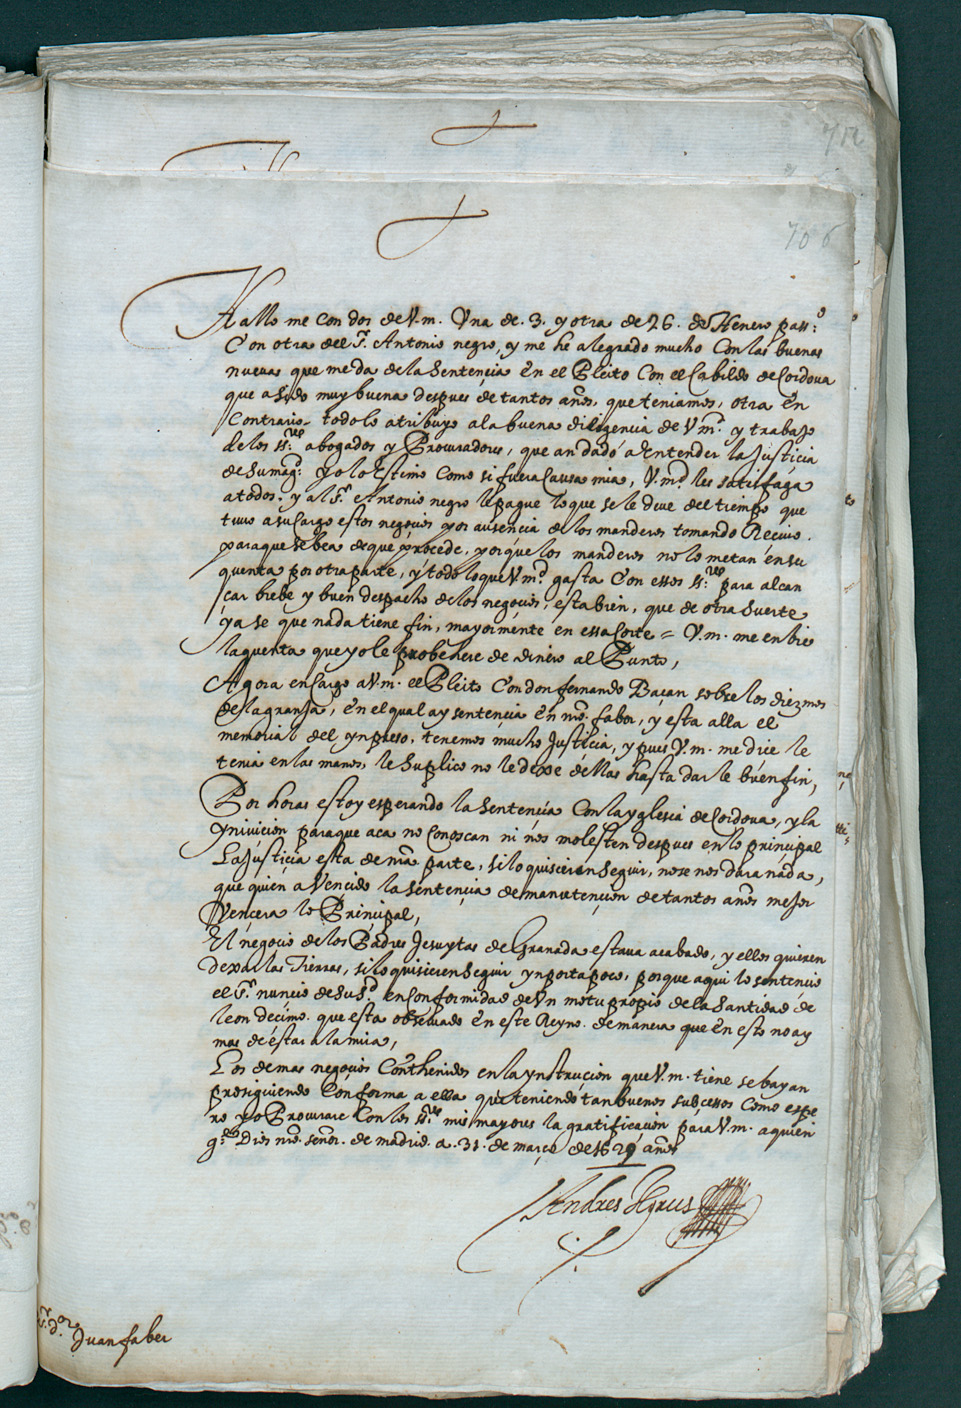 712
706
Hallo me con dos de V.m. Vna de .3. y otra de 26. de Henero pass:o
Con otra del Sr. Antonio negro, y me he alegrado mucho Con las buenas
nuevas que me da de la Sentencia en el Pleito Con el Cabildo de Cordova
que a sido muy buena despues de tantos años, que teniamos, otra en
Contrario, todo lo atribuyo a la buena diligencia de V.md. y trabajo
de los ss:res abogados y Procuradores, que an dado a entender la Justicia
de su mag.d y o lo estimo como si fuera Causa mia, V.md les satisfaga
a todos. y al Sr Antonio negro le pague lo que se le deve del tiempo que
tuvo a su Cargo estos negocios por ausencia de los manderos tomando Recivo.
para que se bea de que procede, porque los manderos no lo metan en su
quenta por otra parte, y todo lo que V.md gasta Con essos ss:res para alcan
çar brebe y buen despacho de los negocios, esta bien, que de otra suerte
ya se que nada tiene fin, mayormente en essa Corte = V.m. me enbie
la quenta que yo le probehere de dinero al Punto,
Agora enCargo a V.m. el Pleito Con don fernando Baçan sobre los diezmos
de la granja, en el qual ay sentencia en nro. fabor, y esta alla el
memorial del ynpreso, tenemos mucho Justicia, y pues V.m. me dice le
tenia en las manos, le suplico no le dexe dellas hasta dar le buen fin,
Por horas estoy esperando la Sentencia Con la yglesia de Cordova, y la
ynivicion para que aca no Conoscan ni nos molesten despues en lo principal
La Justicia esta de nra parte, si lo quisieren seguir, no se nos dara nada,
que quien a Vencido la sentencia de manutencion de tantos años mejor
Vencera lo Principal,
El negocio de los Padres Jesuytas de Granada estava acabado, y ellos quieren
dexar las Tierras, si lo quisieren seguir ynporta poco, porque aqui lo sentencio
el Sr. nuncio de Su Sd. en Conformidad de Vn motu propio de la Santidad de
leon decimo. que esta observado en este Reyno. de manera que en esto no ay
mas de estar a la mira,
Los demas negocios Conthenidos en la ynstrucion que V.m. tiene se bayan
prosiguiendo Conforma a ella que teniendo tan buenos subcessos como espe
ro yo Procurare Con los ss:res mis mayores la gratificacion para V.m. a quien
g.de Dios nro. señor. de madrid. a .31. de março de 1629 años
Andres
Sr. dor. Juan faber